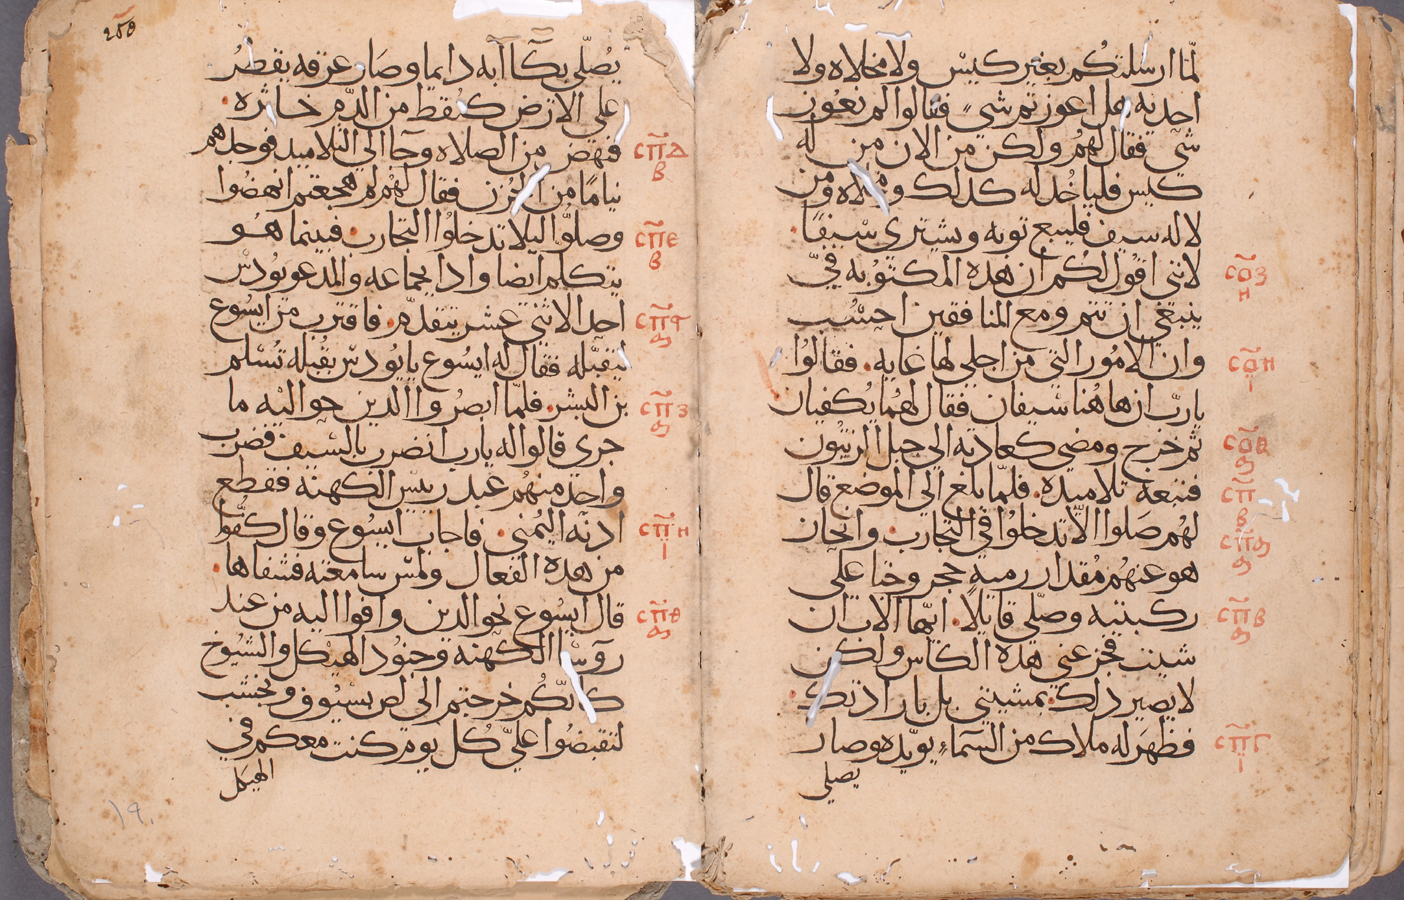 لمّا ارسلتكم بغير كيس ولا مخلاه ولا
احديه هل اعوزتم شي فقالوا لم نعوز
شي فقال لهم ولكن من الان من له
كيس فلياخُد له كدلك ومخلاه ومن
لا له سيف فليبع توبه ويشتري سيفًا
لانني اقول لكم ان هده المكتوبه فيّ
ينبغي ان تتم ومع المنافقين احسب
وان الامور التي من اجلي لها غايه. فقالوا
يارب ان هاهنا سيفان فقال لهما يكفيان
ثم خرج ومضي كعادته الي جبل الزيتون
فتبعه تلاميده. فلمّا بلغ الى الموضع قال
لهم صلوا الّا تدخلوا في التجارب. وانحاز
هو عنهم مقدار رمية حجر وخبا علي
ركبتيه وصلّي قايلًا. ايها الاب ان
شيت فجز عني هده الكاس ولكن
لا يصير دلك بمشيتي بل بارادتك
فظهر له ملاك من السماء يويده وصار
يصلي
ⲥⲟⲍ
ⲏ
ⲥⲟⲏ
ⲓ
ⲥⲟⲑ
ⲥⲡ
ⲃ
ⲥⲡⲃ
ⲥⲡⲅ
ⲓ
يُصلّي بكاابه دايما وصار عرقه يقطر
علي الارض كنقط من الدم خاثره
فنهض من الصلاه وجا الي التلاميد فوجدهم
نيامًا من الحزن فقال لهم لم هجعتم انهضوا
وصلوا ليلا تدخلوا التجارب. فبينما هو
يتكلم ايضا وادا بجماعه والمدعو يودس
احد الاثني عشر يتقدم. فاقترب من ايسوع
ليقبّله فقال له ايسوع يا يودس بقبله تسلم
بن البشر. فلما ابصروا الدين حواليه ما
جرى قالوا له يارب انضرب بالسيف فضرب
واحد منهم عبد رييس الكهنه فقطع
ادنه اليمني. فاجاب ايسوع وقال كفّوا
من هده الفعال ولمس سامعته فشفاها.
قال ايسوع نحو الدين وافوا اليه من عند
روسا الكهنه وجنود الهيكل والشيوخ
كانّكم خرجتم الى لص بسيوف وبخشب
لتقبضوا عليّ كل يوم كنت معكم في
الهيكل
ⲥⲡⲇ
ⲃ
ⲥⲡⲉ
ⲃ
ⲥⲡⲍ
ⲥⲡⲏ
ⲓ
ⲥⲡⲑ
١٩٠